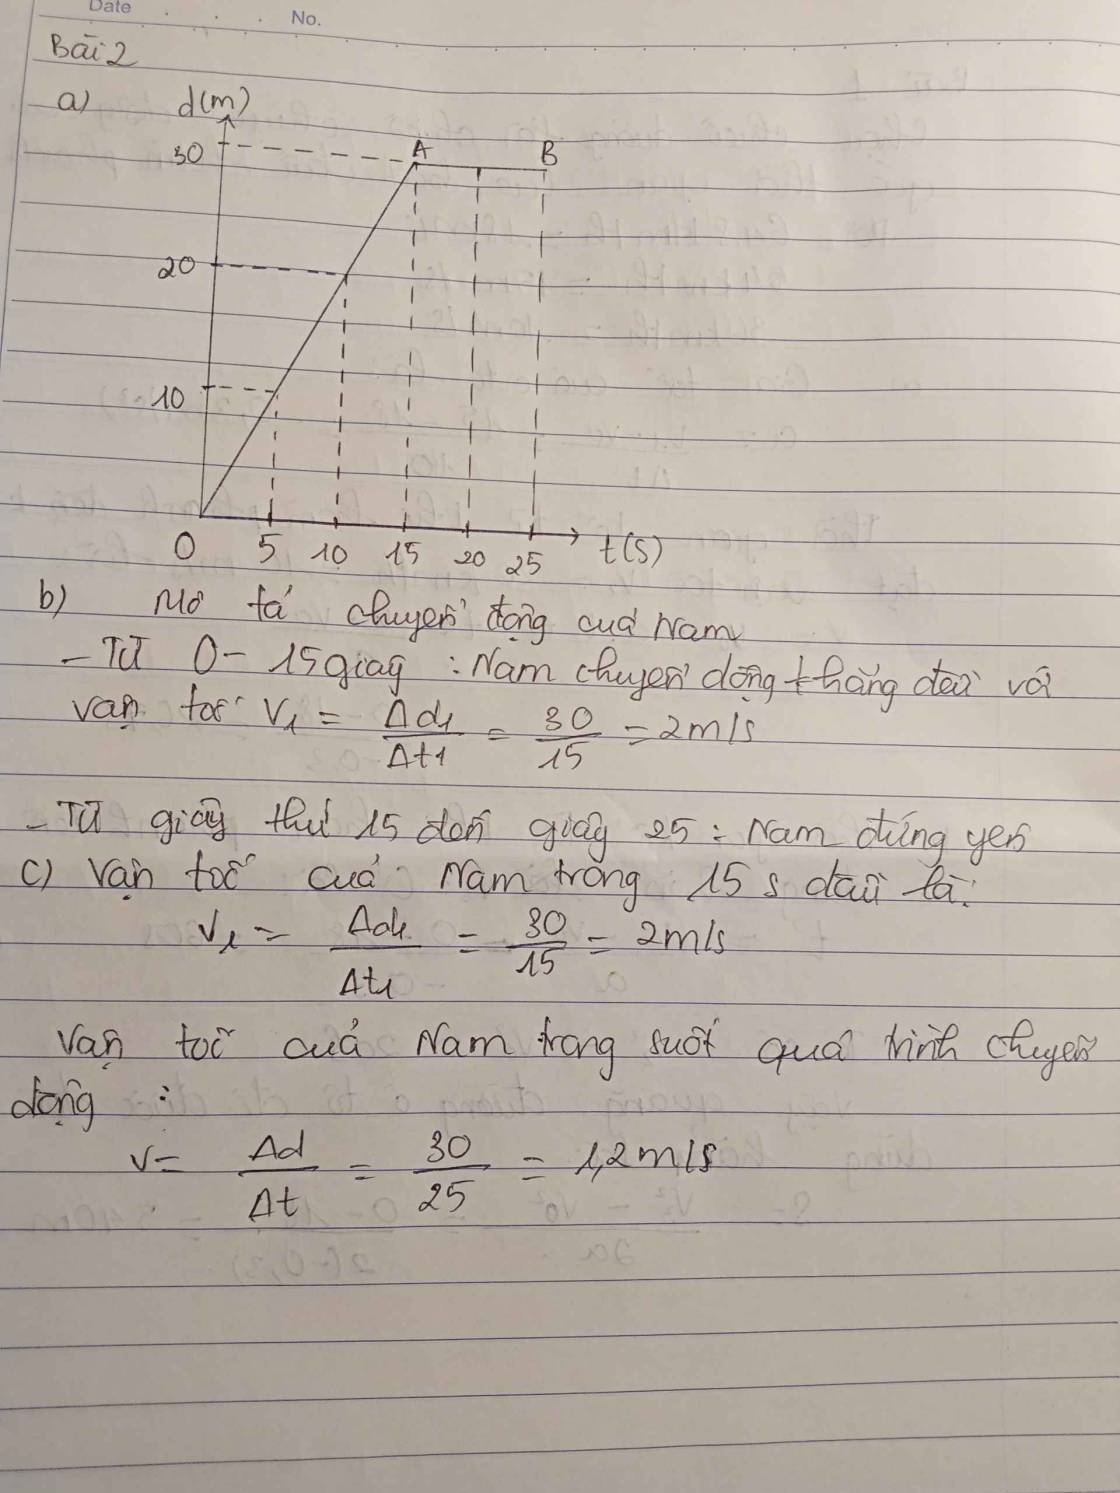 Date No.
Bài 2
a) d(m)
30 A B
20
10
0 5 10 15 20 25 t(s)
b) Mô tả chuyển động của Nam
- Từ 0 - 15 giây : Nam chuyển động thẳng đều với
vận tốc V₁ = Δd₁/Δt₁ = 30/15 = 2m/s
- Từ giây thứ 15 đến giây 25 : Nam đứng yên
c) Vận tốc của Nam trong 15 s đầu là:
V₁ = Δd₁/Δt₁ = 30/15 = 2m/s
Vận tốc của Nam trong suốt quá trình chuyển
động :
V = Δd/Δt = 30/25 = 1,2m/s